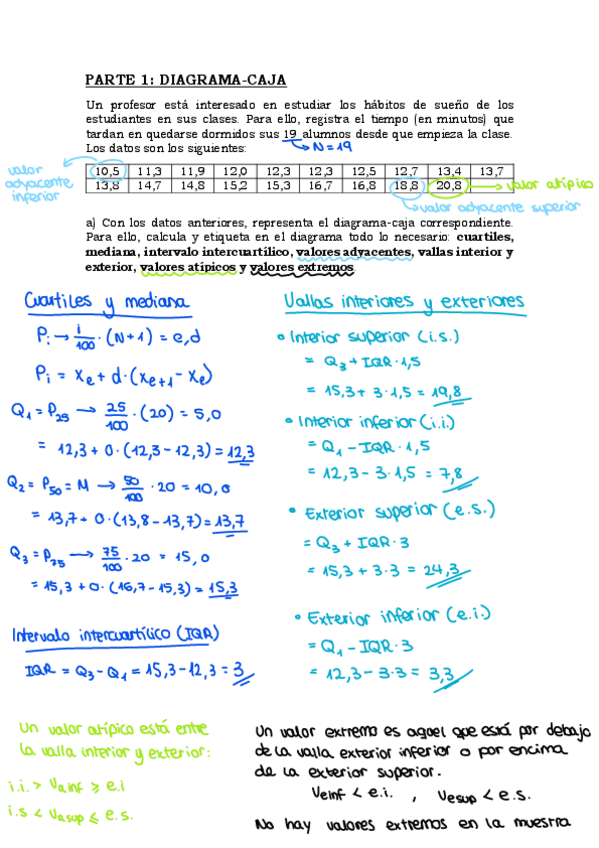 PARTE 1: DIAGRAMA-CAJA
Un profesor está interesado en estudiar los hábitos de sueño de los
estudiantes en sus clases. Para ello, registra el tiempo (en minutos) que
tardan en quedarse dormidos sus 19 alumnos desde que empieza la clase.
Los datos son los siguientes:
N = 19
valor adyacente inferior
10,5 11,3 11,9 12,0 12,3 12,3 12,5 12,7 13,4 13,7
13,8 14,7 14,8 15,2 15,3 16,7 16,8 18,8 20,8
valor atípico
valor adyacente superior
a) Con los datos anteriores, representa el diagrama-caja correspondiente.
Para ello, calcula y etiqueta en el diagrama todo lo necesario: cuartiles,
mediana, intervalo intercuartílico, valores adyacentes, vallas interior y
exterior, valores atípicos y valores extremos.
Cuartiles y mediana
Pi → i/100 · (N+1) = e,d
Pi = Xe + d · (Xe+1 − Xe)
Q1 = P25 → 25/100 · (20) = 5,0
= 12,3 + 0 · (12,3 − 12,3) = 12,3
Q2 = P50 = M → 50/100 · 20 = 10,0
= 13,7 + 0 · (13,8 − 13,7) = 13,7
Q3 = P75 → 75/100 · 20 = 15,0
= 15,3 + 0 · (16,7 − 15,3) = 15,3
Intervalo intercuartílico (IQR)
IQR = Q3 − Q1 = 15,3 − 12,3 = 3
Vallas interiores y exteriores
• Interior superior (i.s.)
= Q3 + IQR · 1,5
= 15,3 + 3 · 1,5 = 19,8
• Interior inferior (i.i.)
= Q1 − IQR · 1,5
= 12,3 − 3 · 1,5 = 7,8
• Exterior superior (e.s.)
= Q3 + IQR · 3
= 15,3 + 3 · 3 = 24,3
• Exterior inferior (e.i.)
= Q1 − IQR · 3
= 12,3 − 3 · 3 = 3,3
Un valor atípico está entre
la valla interior y exterior:
i.i. > Vainf ≥ e.i
i.s < Vasup ≤ e.s.
Un valor extremo es aquel que está por debajo
de la valla exterior inferior o por encima
de la exterior superior.
Veinf < e.i. , Vesup < e.s.
No hay valores extremos en la muestra